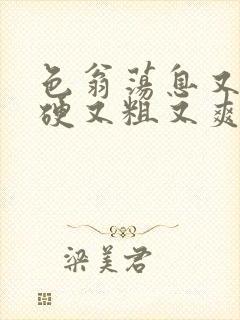 色翁荡息又
硬又粗又爽
梁美君